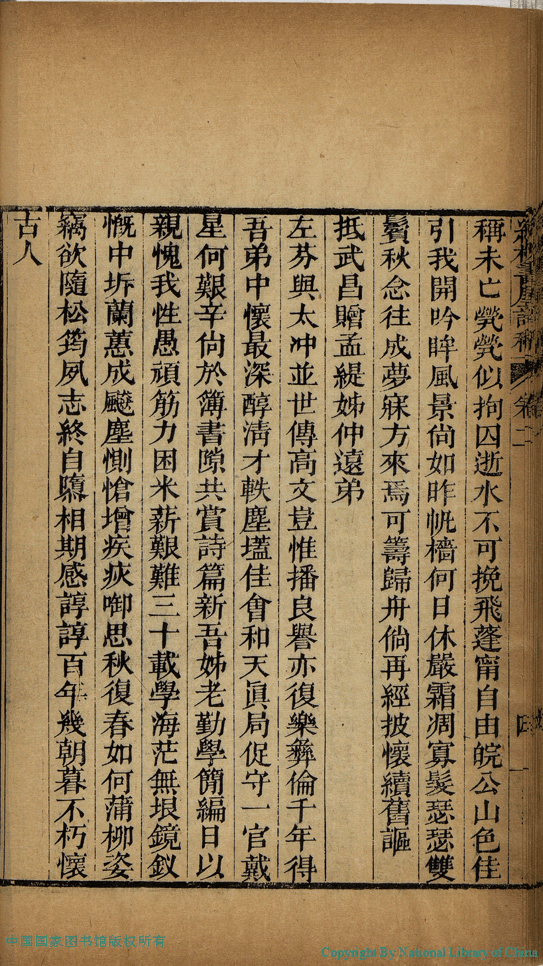 稱未亡煢煢似拘囚逝水不可挽飛蓬甯自由皖公山色佳
引我開吟眸風景尙如昨帆檣何日休嚴霜凋寡髮瑟瑟雙
鬢秋念往成夢寐方來焉可籌歸舟倘再經披懷續舊謳
抵武昌贈孟緹姊仲遠弟
左芬與太冲並世傳高文豈惟播良譽亦復樂彝倫千年得
吾弟中懷最深醇淸才軼塵壒佳會和天眞局促守一官戴
星何艱辛尙於簿書隙共賞詩篇新吾姊老勤學簡編日以
親愧我性愚頑筋力困米薪艱難三十載學海茫無垠鏡釵
慨中坼蘭蕙成飈塵惻愴增疾疢啣思秋復春如何蒲柳姿
竊欲隨松筠夙志終自隳相期感諄諄百年幾朝暮不朽懷
古人
中国国家图书馆版权所有
Copyright By National Library of China